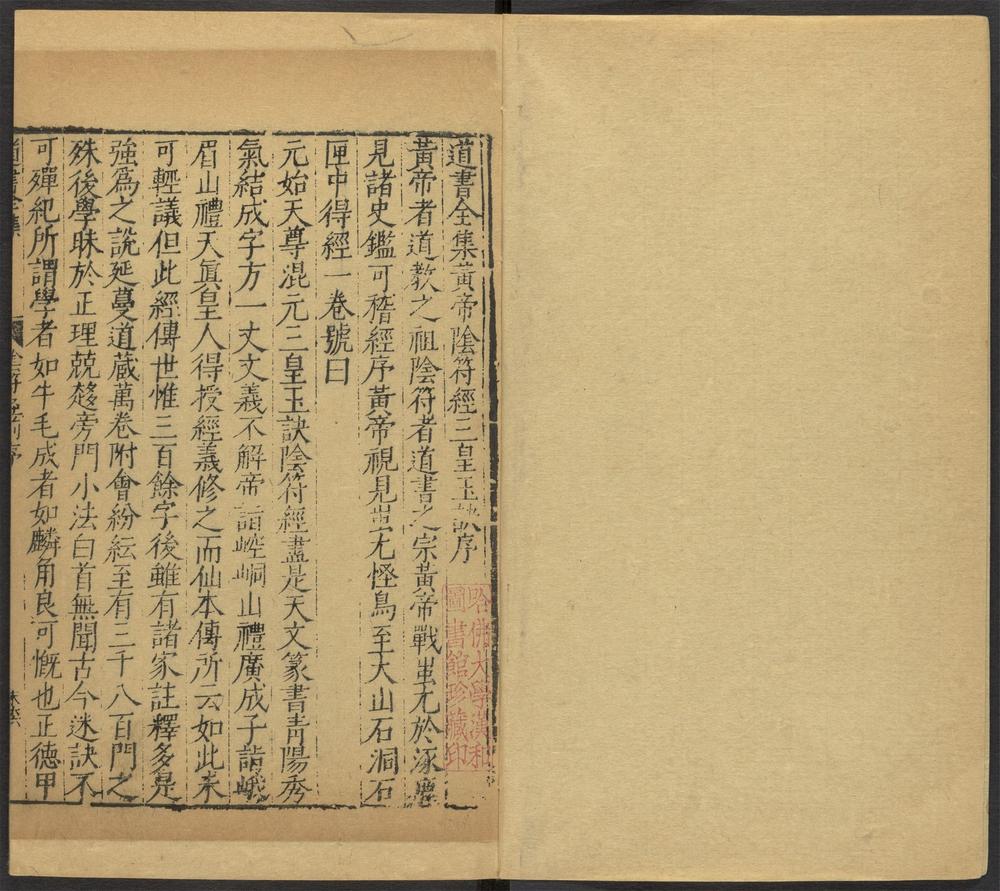 道書全集黃帝陰符經三皇玉訣序
黃帝者道教之祖陰符者道書之宗黃帝戰蚩尤於涿鹿
見諸史鑑可稽經序黃帝視見蚩尤怪鳥至大山石洞石
匣中得經一卷號曰
元始天尊混元三皇玉訣陰符經盡是天文篆書青陽秀
氣結成字方一丈文義不解帝詣崆峒山禮廣成子詣峨
眉山禮天眞皇人得授經義修之而仙本傳所云如此未
可輕議但此經傳世惟三百餘字後雖有諸家註釋多是
強爲之說延蔓道藏萬卷附會紛紜至有三千八百門之
殊後學昧於正理兢趍旁門小法白首無聞古今迷訣不
可殫紀所謂學者如牛毛成者如麟角良可慨也正德甲
道書全集
哈佛大學漢和
圖書館珍藏印